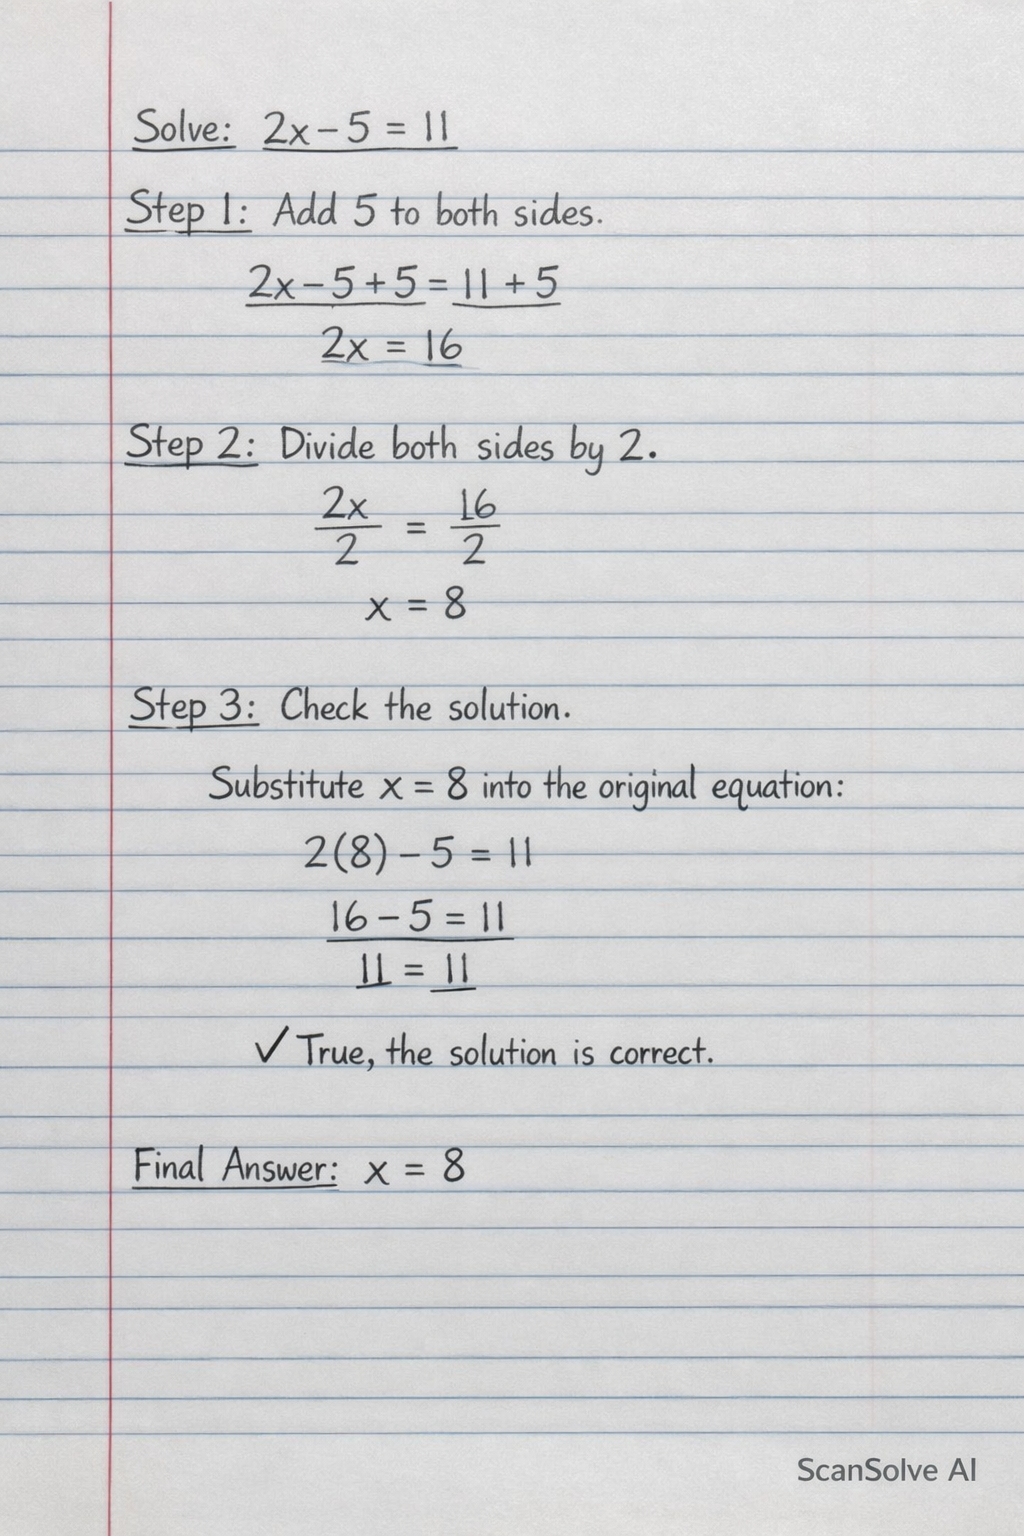 Solve: 2x - 5 = 11
Step 1: Add 5 to both sides.
2x - 5 + 5 = 11 + 5
2x = 16
Step 2: Divide both sides by 2.
2x/2 = 16/2
x = 8
Step 3: Check the solution.
Substitute x = 8 into the original equation:
2(8) - 5 = 11
16 - 5 = 11
11 = 11
✓ True, the solution is correct.
Final Answer: x = 8
ScanSolve AI